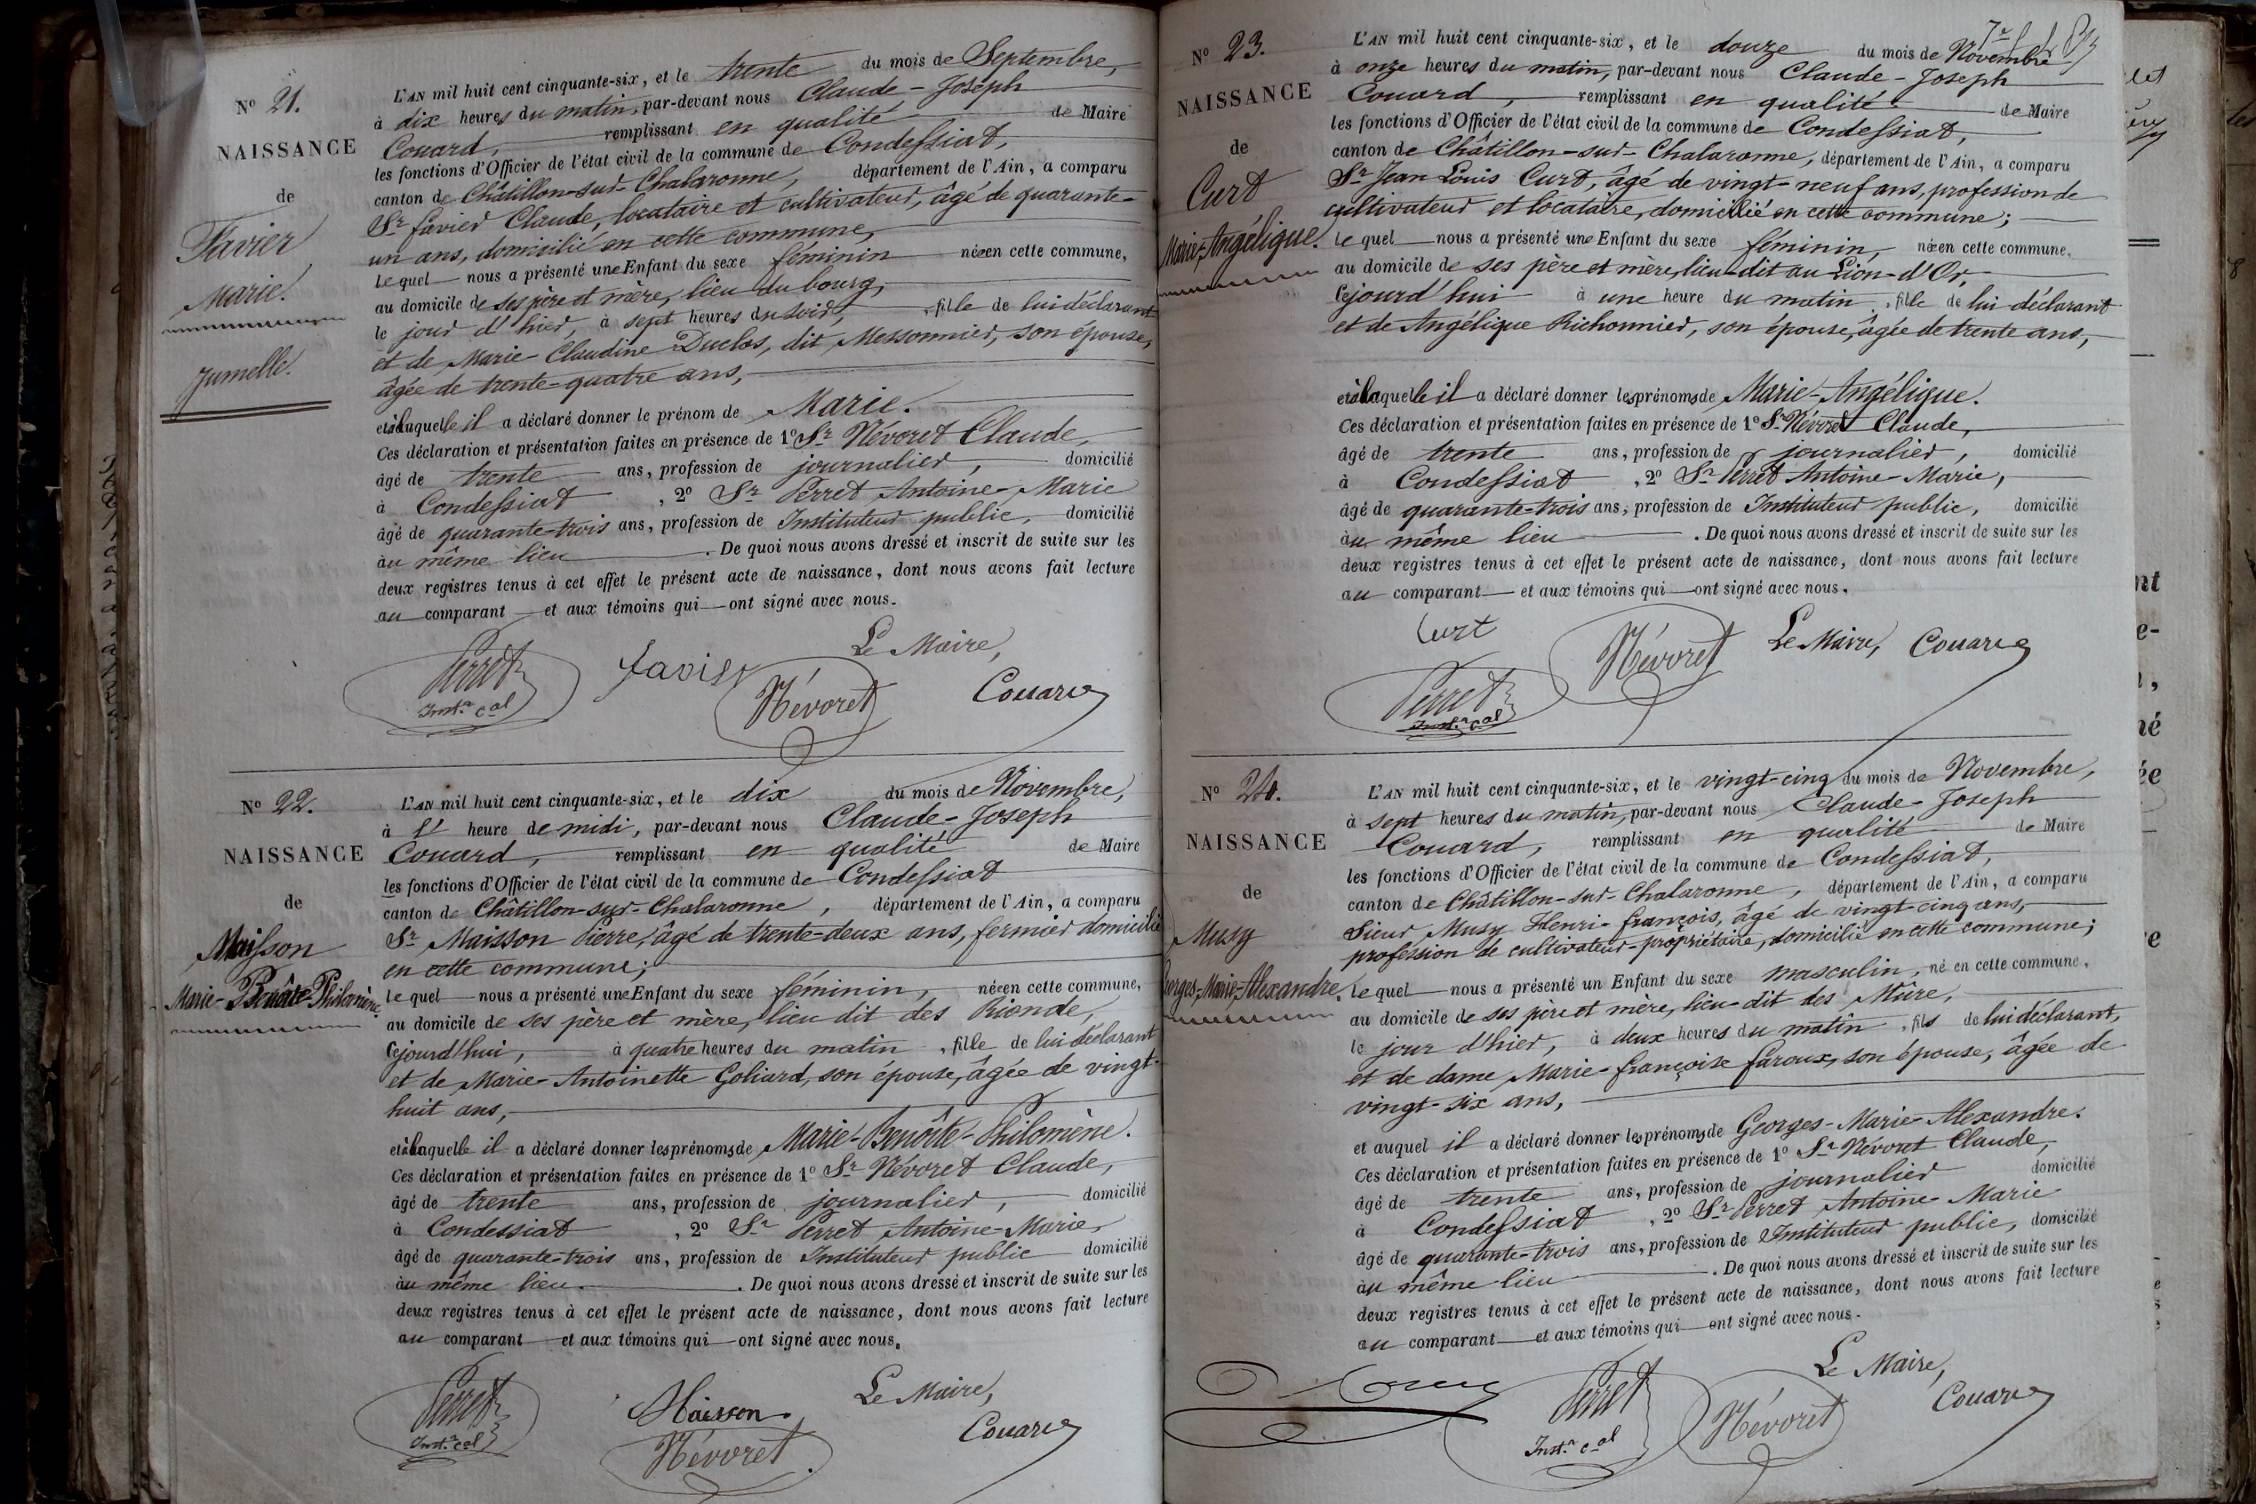 N° 21.
NAISSANCE
de
Favier
Marie.
Jumelle.
L'AN mil huit cent cinquante-six, et le trente du mois de Septembre,
à dix heures du matin, par-devant nous Claude-Joseph
Couard, remplissant en qualité de Maire
les fonctions d'Officier de l'état civil de la commune de Condeſsiat,
canton de Châtillon-sur-Chalaronne, département de l'Ain, a comparu
Sr. favier Claude, locataire et cultivateur, âgé de quarante-
un ans, domicilié en cette commune,
lequel nous a présenté une Enfant du sexe féminin née en cette commune,
au domicile de ses père et mère, lieu du bourg,
le jour d'hier, à sept heures du soir, fille de lui déclarant
et de Marie-Claudine Duclos, dit Messonnier, son épouse,
âgée de trente-quatre ans,
et à laquelle il a déclaré donner le prénom de Marie.
Ces déclaration et présentation faites en présence de 1° Sr. Névoret Claude,
âgé de trente ans, profession de journalier, domicilié
à Condeſsiat, 2° Sr. Perret Antoine-Marie
âgé de quarante-trois ans, profession de Instituteur public, domicilié
au même lieu. De quoi nous avons dressé et inscrit de suite sur les
deux registres tenus à cet effet le présent acte de naissance, dont nous avons fait lecture
au comparant et aux témoins qui ont signé avec nous.
Le Maire,
Perret favier Névoret Couard
Inst.r cal
N° 22.
NAISSANCE
de
Maiſson
Marie-Benôite-Philomène
L'AN mil huit cent cinquante-six, et le dix du mois de Novembre,
à l' heure de midi, par-devant nous Claude-Joseph
Couard, remplissant en qualité de Maire
les fonctions d'Officier de l'état civil de la commune de Condeſsiat
canton de Châtillon-sur-Chalaronne, département de l'Ain, a comparu
Sr. Maisson Pierre, âgé de trente-deux ans, fermier domicilié
en cette commune;
lequel nous a présenté une Enfant du sexe féminin, née en cette commune,
au domicile de ses père et mère, lieu dit des Rionde,
cejourd'hui, à quatre heures du matin, fille de lui déclarant
et de Marie-Antoinette Goliard, son épouse, âgée de vingt-
huit ans,
et à laquelle il a déclaré donner les prénoms de Marie-Benôite-Philomène.
Ces déclaration et présentation faites en présence de 1° Sr. Névoret Claude,
âgé de trente ans, profession de journalier, domicilié
à Condessiat, 2° Sr. Perret Antoine-Marie,
âgé de quarante-trois ans, profession de Instituteur public domicilié
au même lieu. De quoi nous avons dressé et inscrit de suite sur les
deux registres tenus à cet effet le présent acte de naissance, dont nous avons fait lecture
au comparant et aux témoins qui ont signé avec nous.
Le Maire,
Perret Maisson Couard
Inst.r cal Névoret
N° 23.
NAISSANCE
de
Curt
Marie-Angélique.
L'AN mil huit cent cinquante-six, et le douze du mois de Novembre
à onze heures du matin, par-devant nous Claude-Joseph
Couard, remplissant en qualité de Maire
les fonctions d'Officier de l'état civil de la commune de Condeſsiat,
canton de Châtillon-sur-Chalaronne, département de l'Ain, a comparu
Sr. Jean Louis Curt, âgé de vingt-neuf ans, profession de
cultivateur et locataire, domicilié en cette commune;
lequel nous a présenté une Enfant du sexe féminin, née en cette commune,
au domicile de ses père et mère, lieu-dit au Lion-d'Or,
cejourd'hui à une heure du matin, fille de lui déclarant
et de Angélique Richonnier, son épouse, âgée de trente ans,
et à laquelle il a déclaré donner les prénoms de Marie-Angélique.
Ces déclaration et présentation faites en présence de 1° Sr. Névoret Claude,
âgé de trente ans, profession de journalier, domicilié
à Condeſsiat, 2° Sr. Perret Antoine-Marie,
âgé de quarante-trois ans, profession de Instituteur public, domicilié
au même lieu. De quoi nous avons dressé et inscrit de suite sur les
deux registres tenus à cet effet le présent acte de naissance, dont nous avons fait lecture
au comparant et aux témoins qui ont signé avec nous.
Curt Névoret Le Maire, Couard
Perret
Inst.r cal
N° 24.
NAISSANCE
de
Musy
Georges-Marie-Alexandre.
L'AN mil huit cent cinquante-six, et le vingt-cinq du mois de Novembre,
à sept heures du matin, par-devant nous Claude-Joseph
Couard, remplissant en qualité de Maire
les fonctions d'Officier de l'état civil de la commune de Condeſsiat,
canton de Châtillon-sur-Chalaronne, département de l'Ain, a comparu
Sieur Musy Henri-françois, âgé de vingt-cinq ans,
profession de cultivateur-propriétaire, domicilié en cette commune;
lequel nous a présenté un Enfant du sexe masculin, né en cette commune,
au domicile de ses père et mère, lieu-dit des Mûre,
le jour d'hier, à deux heures du matin, fils de lui déclarant,
et de dame Marie-françoise faroux, son épouse, âgée de
vingt-six ans,
et auquel il a déclaré donner les prénoms de Georges-Marie-Alexandre.
Ces déclaration et présentation faites en présence de 1° Sr. Névoret Claude,
âgé de trente ans, profession de journalier domicilié
à Condeſsiat, 2° Sr. Perret Antoine-Marie
âgé de quarante-trois ans, profession de Instituteur public, domicilié
au même lieu. De quoi nous avons dressé et inscrit de suite sur les
deux registres tenus à cet effet le présent acte de naissance, dont nous avons fait lecture
au comparant et aux témoins qui ont signé avec nous.
Le Maire,
Perret Névoret Couard
Inst.r cal